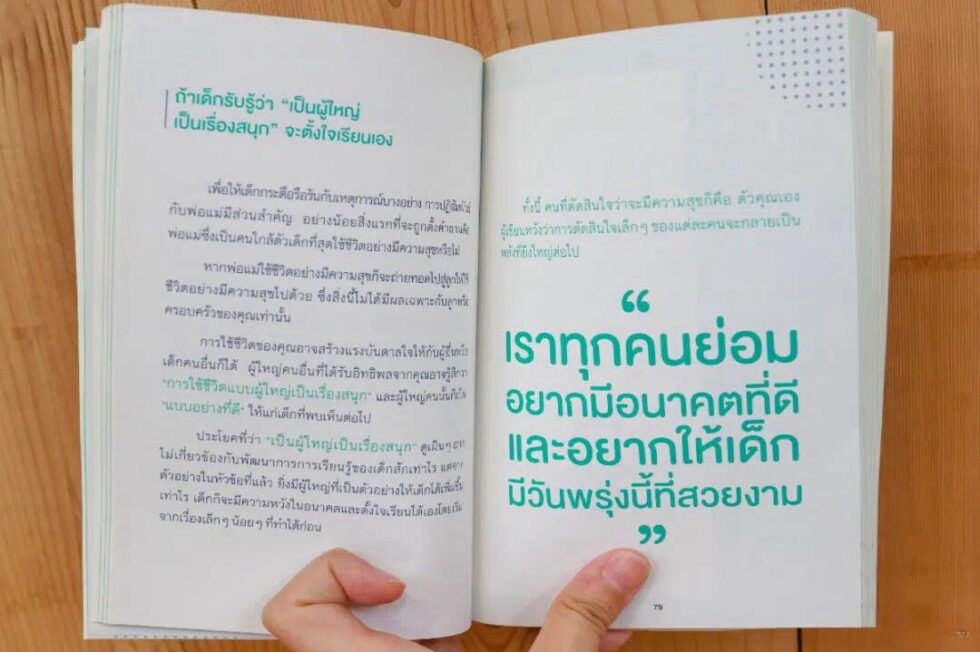 ถ้าเด็กรับรู้ว่า “เป็นผู้ใหญ่
เป็นเรื่องสนุก” จะตั้งใจเรียนเอง
เพื่อให้เด็กกระตือรือร้นกับเหตุการณ์บางอย่าง การปฏิสัมพันธ์
กับพ่อแม่มีส่วนสำคัญ อย่างน้อยสิ่งแรกที่จะถูกตั้งคำถามคือ
พ่อแม่ซึ่งเป็นคนใกล้ตัวเด็กที่สุดใช้ชีวิตอย่างมีความสุขหรือไม่
หากพ่อแม่ใช้ชีวิตอย่างมีความสุขก็จะถ่ายทอดไปสู่ลูกให้ใช้
ชีวิตอย่างมีความสุขไปด้วย ซึ่งสิ่งนี้ไม่ได้มีผลเฉพาะกับลูกหรือ
ครอบครัวของคุณเท่านั้น
การใช้ชีวิตของคุณอาจสร้างแรงบันดาลใจให้กับผู้อื่นหรือ
เด็กคนอื่นก็ได้ ผู้ใหญ่คนอื่นที่ได้รับอิทธิพลจากคุณอาจรู้สึกว่า
“การใช้ชีวิตแบบผู้ใหญ่เป็นเรื่องสนุก” และผู้ใหญ่คนนั้นก็เป็น
“แบบอย่างที่ดี” ให้แก่เด็กที่พบเห็นต่อไป
ประโยคที่ว่า “เป็นผู้ใหญ่เป็นเรื่องสนุก” ดูเผินๆ อาจ
ไม่เกี่ยวข้องกับพัฒนาการการเรียนรู้ของเด็กสักเท่าไร แต่จาก
ตัวอย่างในหัวข้อที่แล้ว ยิ่งมีผู้ใหญ่ที่เป็นตัวอย่างให้เด็กได้เพิ่มขึ้น
เท่าไร เด็กก็จะมีความหวังในอนาคตและตั้งใจเรียนได้เองโดยเริ่ม
จากเรื่องเล็กๆ น้อยๆ ที่ทำได้ก่อน
ทั้งนี้ คนที่ตัดสินใจว่าจะมีความสุขก็คือ ตัวคุณเอง
ผู้เขียนหวังว่าการตัดสินใจเล็กๆ ของแต่ละคนจะกลายเป็น
พลังที่ยิ่งใหญ่ต่อไป
“
เราทุกคนย่อม
อยากมีอนาคตที่ดี
และอยากให้เด็ก
มีวันพรุ่งนี้ที่สวยงาม
”
79